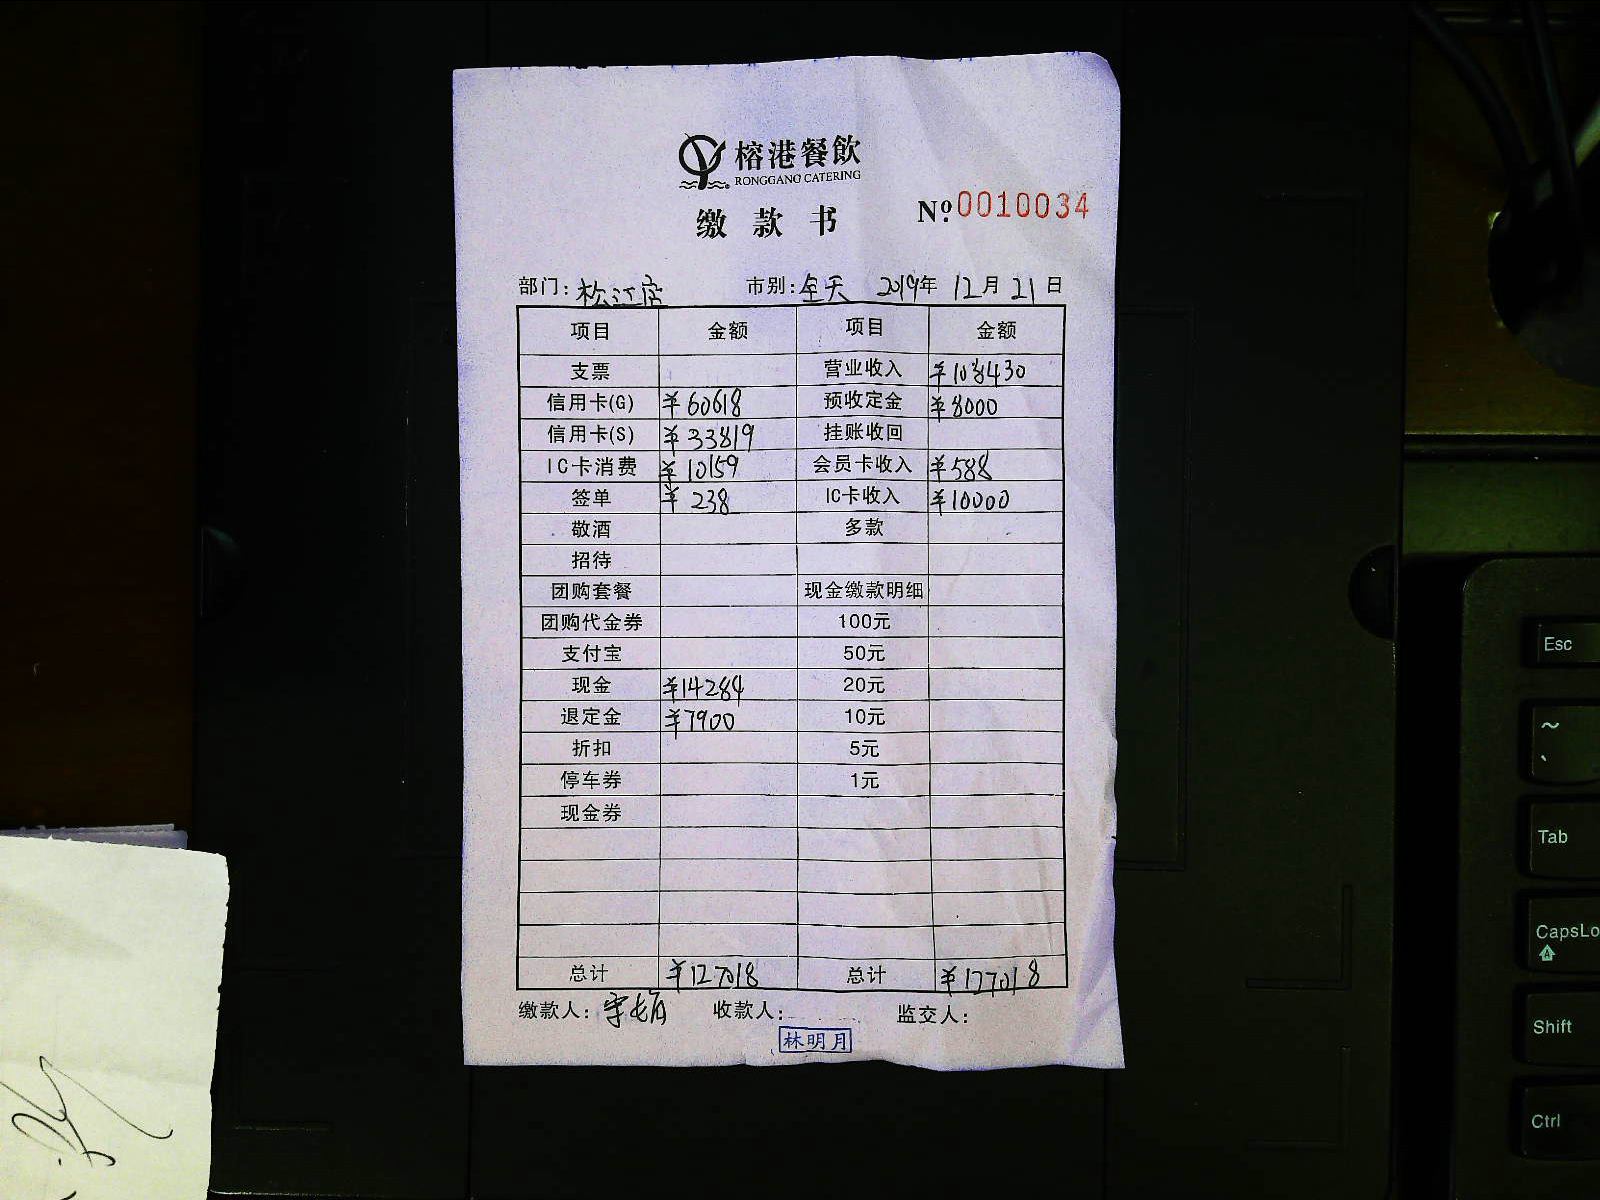 榕港餐飲
RONGGANG CATERING
缴款书 Nº.0010034
部门:松江店 市别:全天 2019年12月21日
项目 金额 项目 金额
支票 营业收入 ¥108430
信用卡(G) ¥60618 预收定金 ¥8000
信用卡(S) ¥33819 挂账收回
IC卡消费 ¥10159 会员卡收入 ¥588
签单 ¥238 IC卡收入 ¥10000
敬酒 多款
招待
团购套餐 现金缴款明细
团购代金券 100元
支付宝 50元
现金 ¥14284 20元
退定金 ¥7900 10元
折扣 5元
停车券 1元
现金券
总计 ¥127018 总计 ¥127018
缴款人: 收款人: 监交人:
林明月
Esc
~
、
Tab
CapsLo
Shift
Ctrl